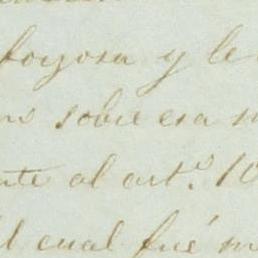 forzosa y le
sobre esa
nte al art.º 10
el cual fué m